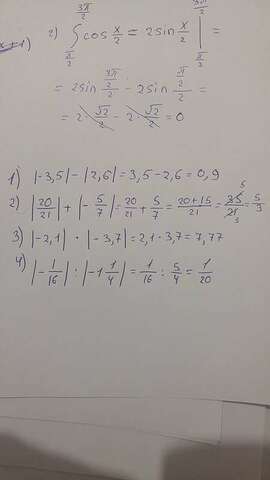 x+1)
2) ∫_{π/2}^{3π/2} cos x/2 = 2sin x/2 |_{π/2}^{3π/2} =
= 2sin (3π/2)/2 - 2sin (π/2)/2 =
= 2·√2/2 - 2·√2/2 = 0
1) |-3,5| - |2,6| = 3,5 - 2,6 = 0,9
2) |20/21| + |-5/7| = 20/21 + 5/7 = (20+15)/21 = 35/21 = 5/3
3) |-2,1| · |-3,7| = 2,1 · 3,7 = 7,77
4) |-1/16| : |-1 1/4| = 1/16 : 5/4 = 1/20